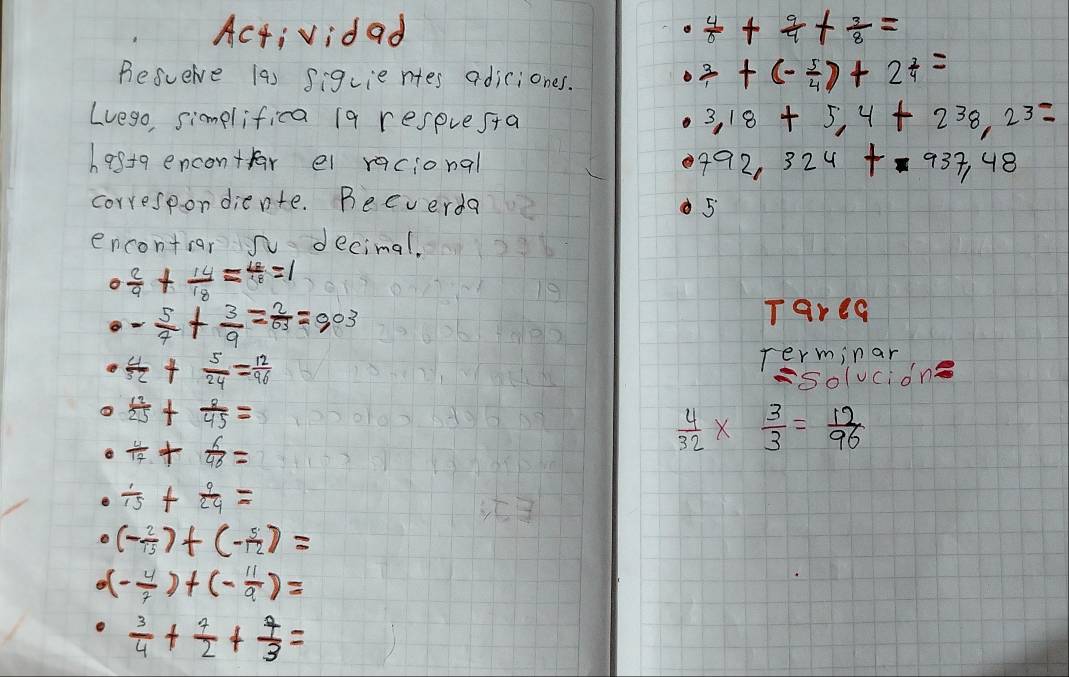 Actividad
Resuelve las siguientes adiciones.
Luego, simplifica la respuesta
hasta encontrar el racional
correspondiente. Recuerda
encontrar su decimal.
• 2/9 + 14/18 = 18/18 = 1
• - 5/7 + 3/9 = 2/63 = 0,03
• 4/32 + 5/24 = 12/96
• 12/25 + 8/45 =
• 4/17 + 6/48 =
• 1/15 + 9/24 =
• (- 2/15) + (- 5/12) =
• (- 4/7) + (- 11/9) =
• 3/4 + 7/2 + 7/3 =
• 4/6 + 9/4 + 3/8 =
• + (- 5/4) + 2 =
• 3,18 + 5,4 + 238,23 =
• 792,324 + 937,48
• 5
Tarea
Terminar
= Solución =
4/32 x 3/3 = 12/96